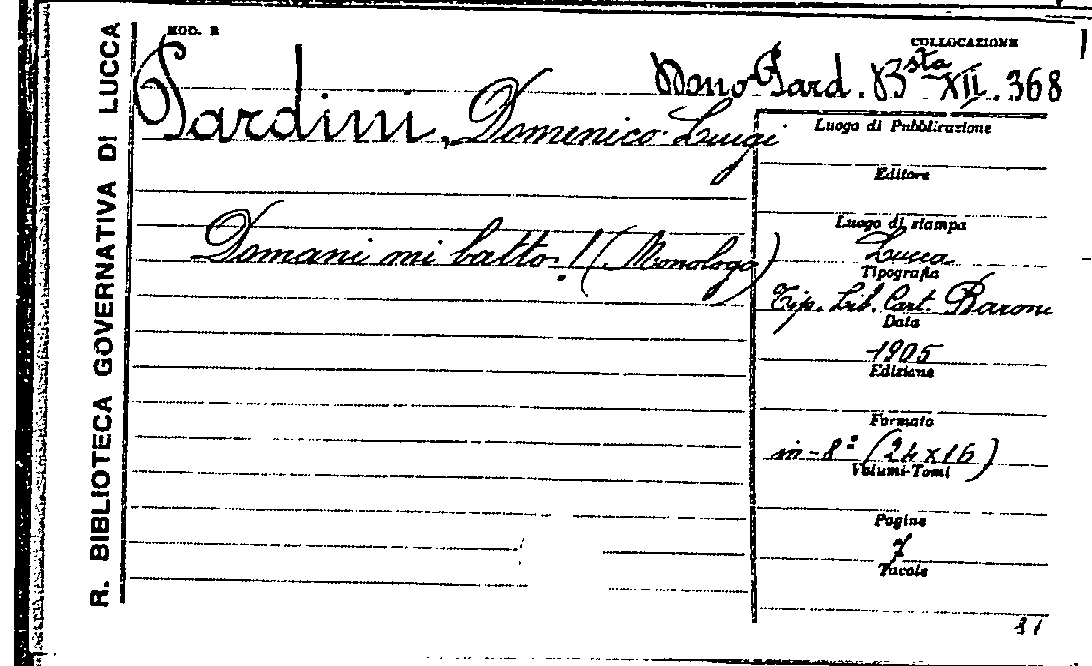 R. BIBLIOTECA GOVERNATIVA DI LUCCA
MOD. B
COLLOCAZIONE
Mono Pard. Bsta XII. 368
Pardini, Domenico Luigi
Domani mi batto! (Monologo)
Luogo di Pubblicazione
Editore
Luogo di stampa
Lucca
Tipografia
Tip. Lib. Cart. Baroni
Data
1905
Edizione
Formato
in-8° (24x16)
Volumi-Tomi
Pagine
7
Tavole